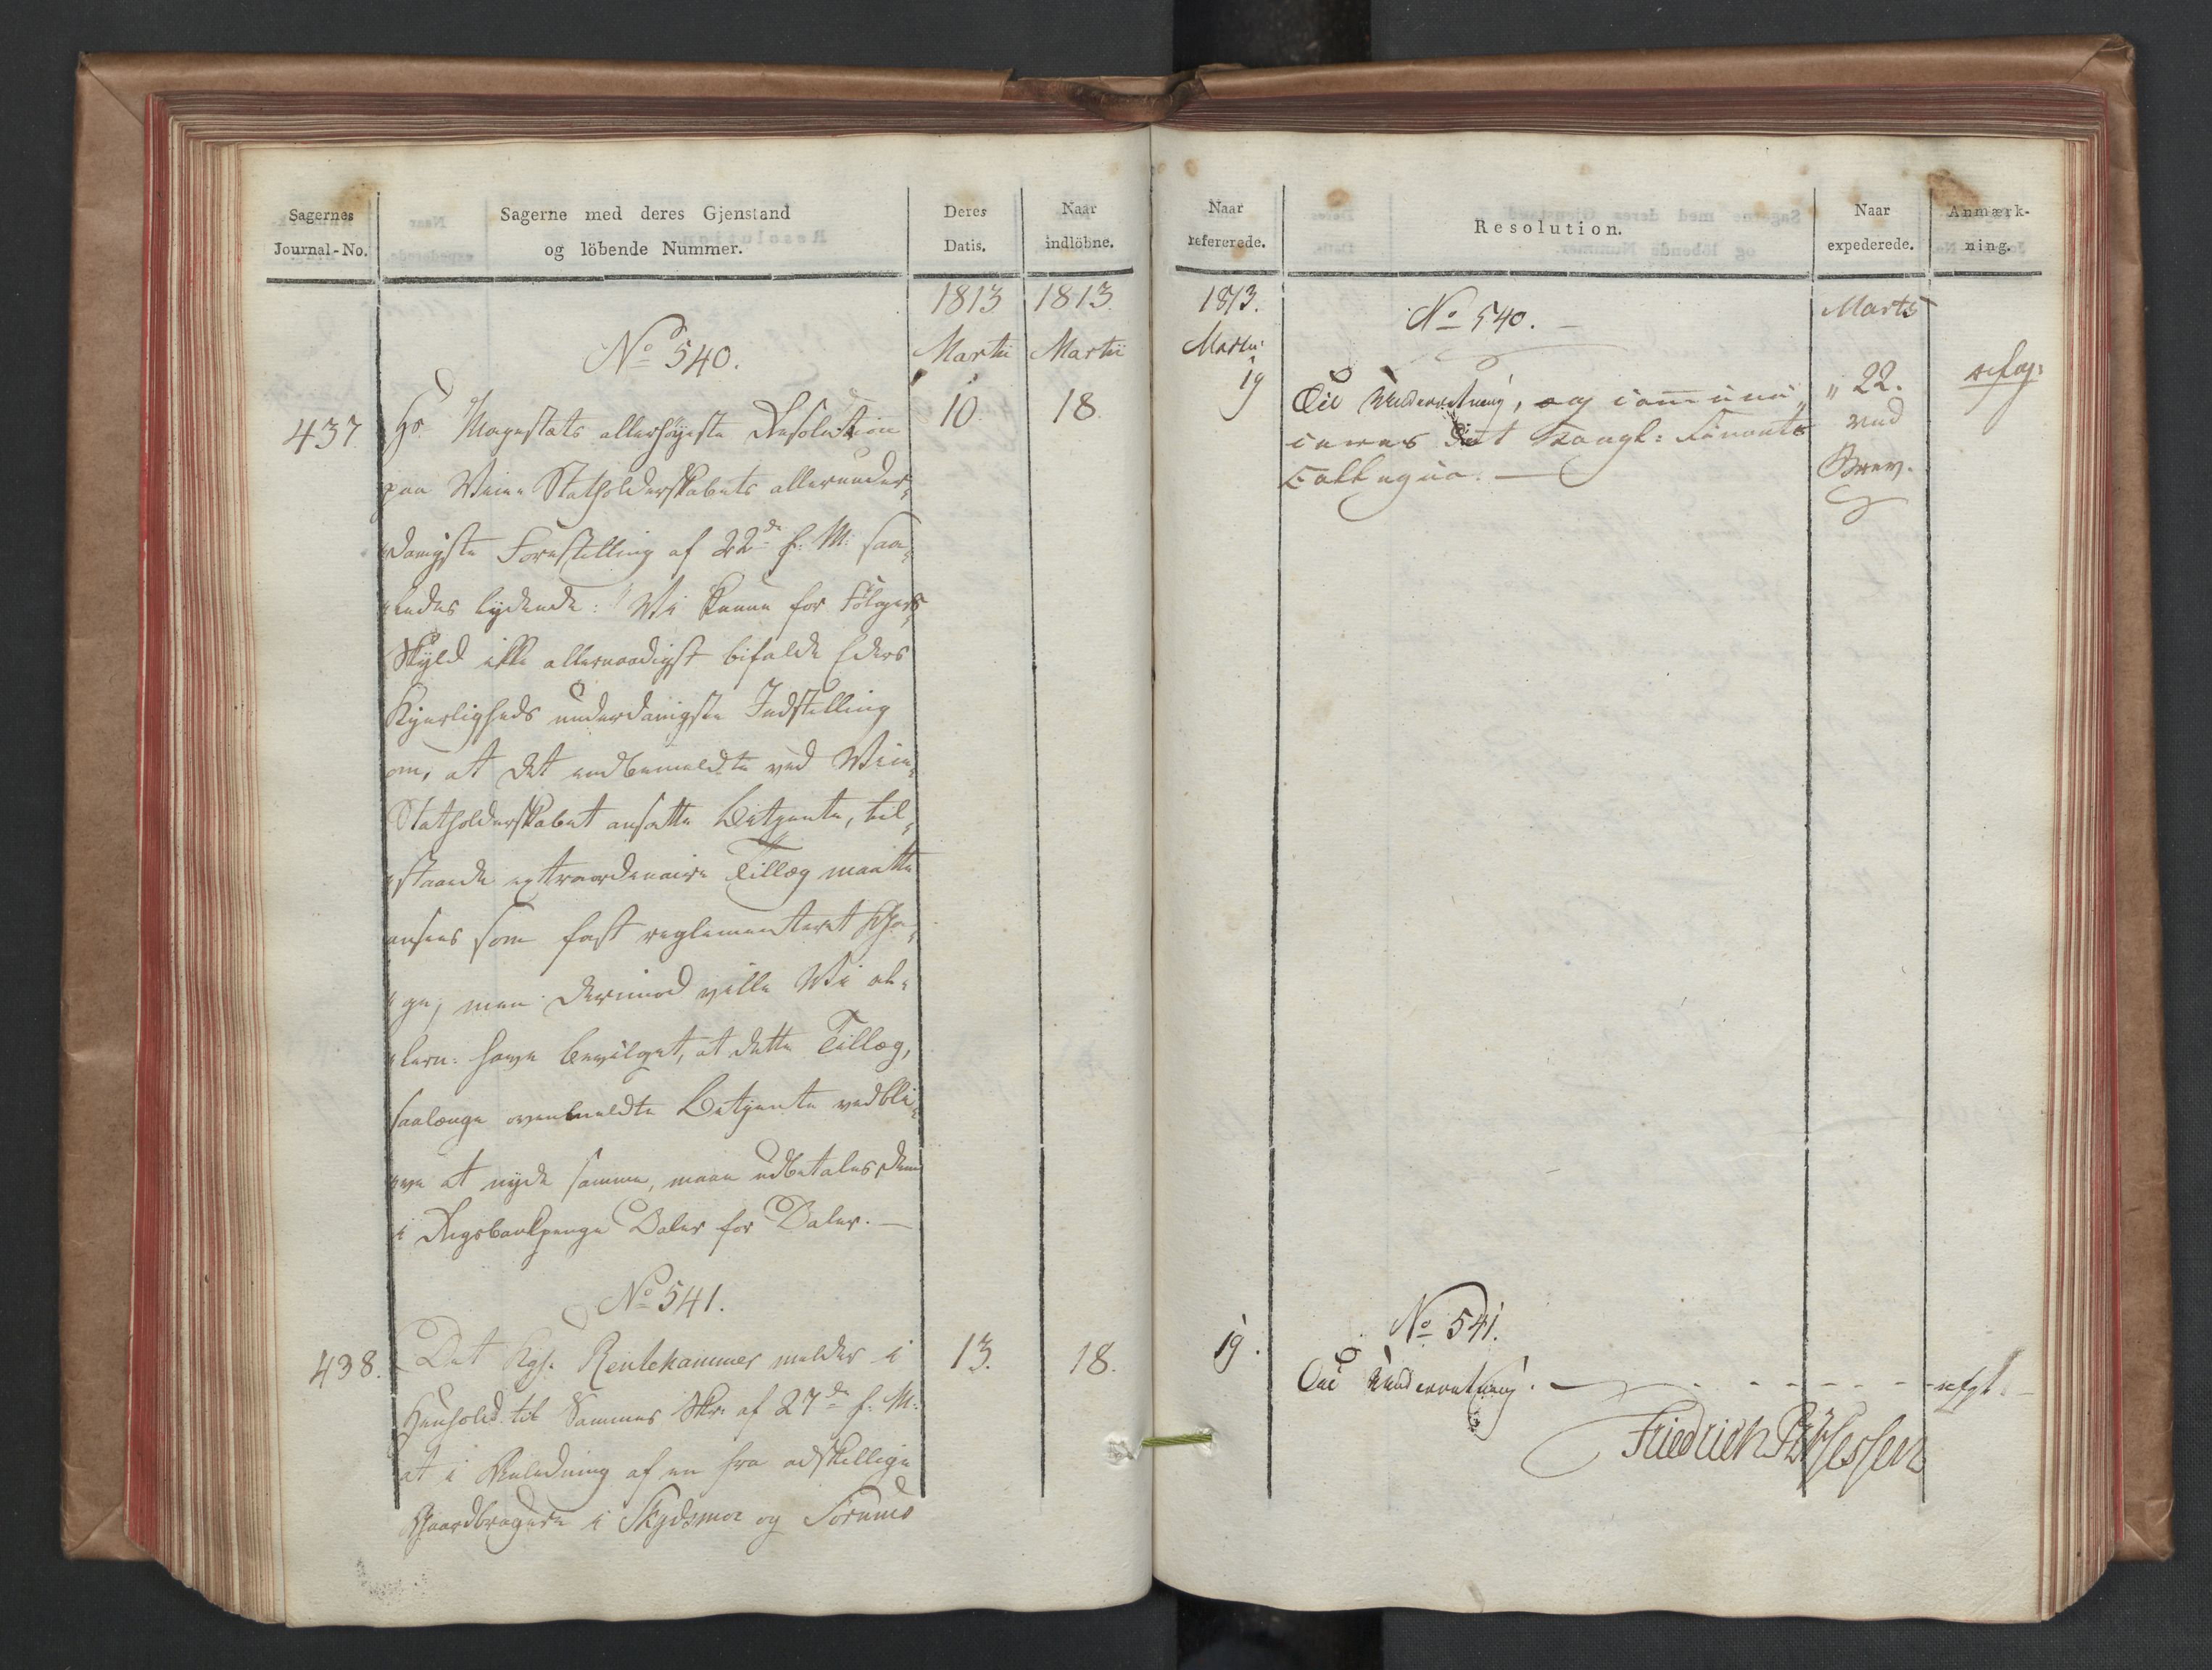 Sagernes
Journal-No.
Sagerne med deres Gjenstand
og löbende Nummer.
Deres
Datis.
Naar
indlöbne.
1813
1813.
Martii
Martii
No 540.
437
10.
18.
Hs Mayestæts allerhøyeste Resolution
paa Vice Statholderskabets allerunder-
danigste Forestilling af 22de f: M: saa-
ledes lydende: Vi kunne for Følgers
Skyld ikke allernaadigst bifalde Eders
Kjerligheds underdanigste Indstilling
om, at det ved Vice-
Statholderskabet ansatte Betjente, til-
staaede extraordenaire Tillæg maatte
ansees som fast reglementeret Ga-
ge; men derimod ville Vi al-
lern: have bevilget, at dette Tillæg,
saalænge ovenmeldte Betjente vedbli-
ve at nyde samme, maae udbetales dem
i Rigsbankpenge Daler for Daler. —
No 541.
438.
13.
18.
Det Kgl. Rentekammer melder i
Henhold til Sammes Skr: af 27de f: M:
at i Anledning af en fra adskillige
Gaardbrugere i Skydsmoe og Sørums
Naar
refererede.
Resolution.
Naar
expederede.
Anmærk-
ning.
1813.
Martii
19
No 540. —
Til Underretning, og communi-
ceres det Kongl: Finants
Collegio. —
Marts
" 22.
ved
Brev.
19.
No 541.
Til Underretning. —
expt.
Friedrich PzHessen